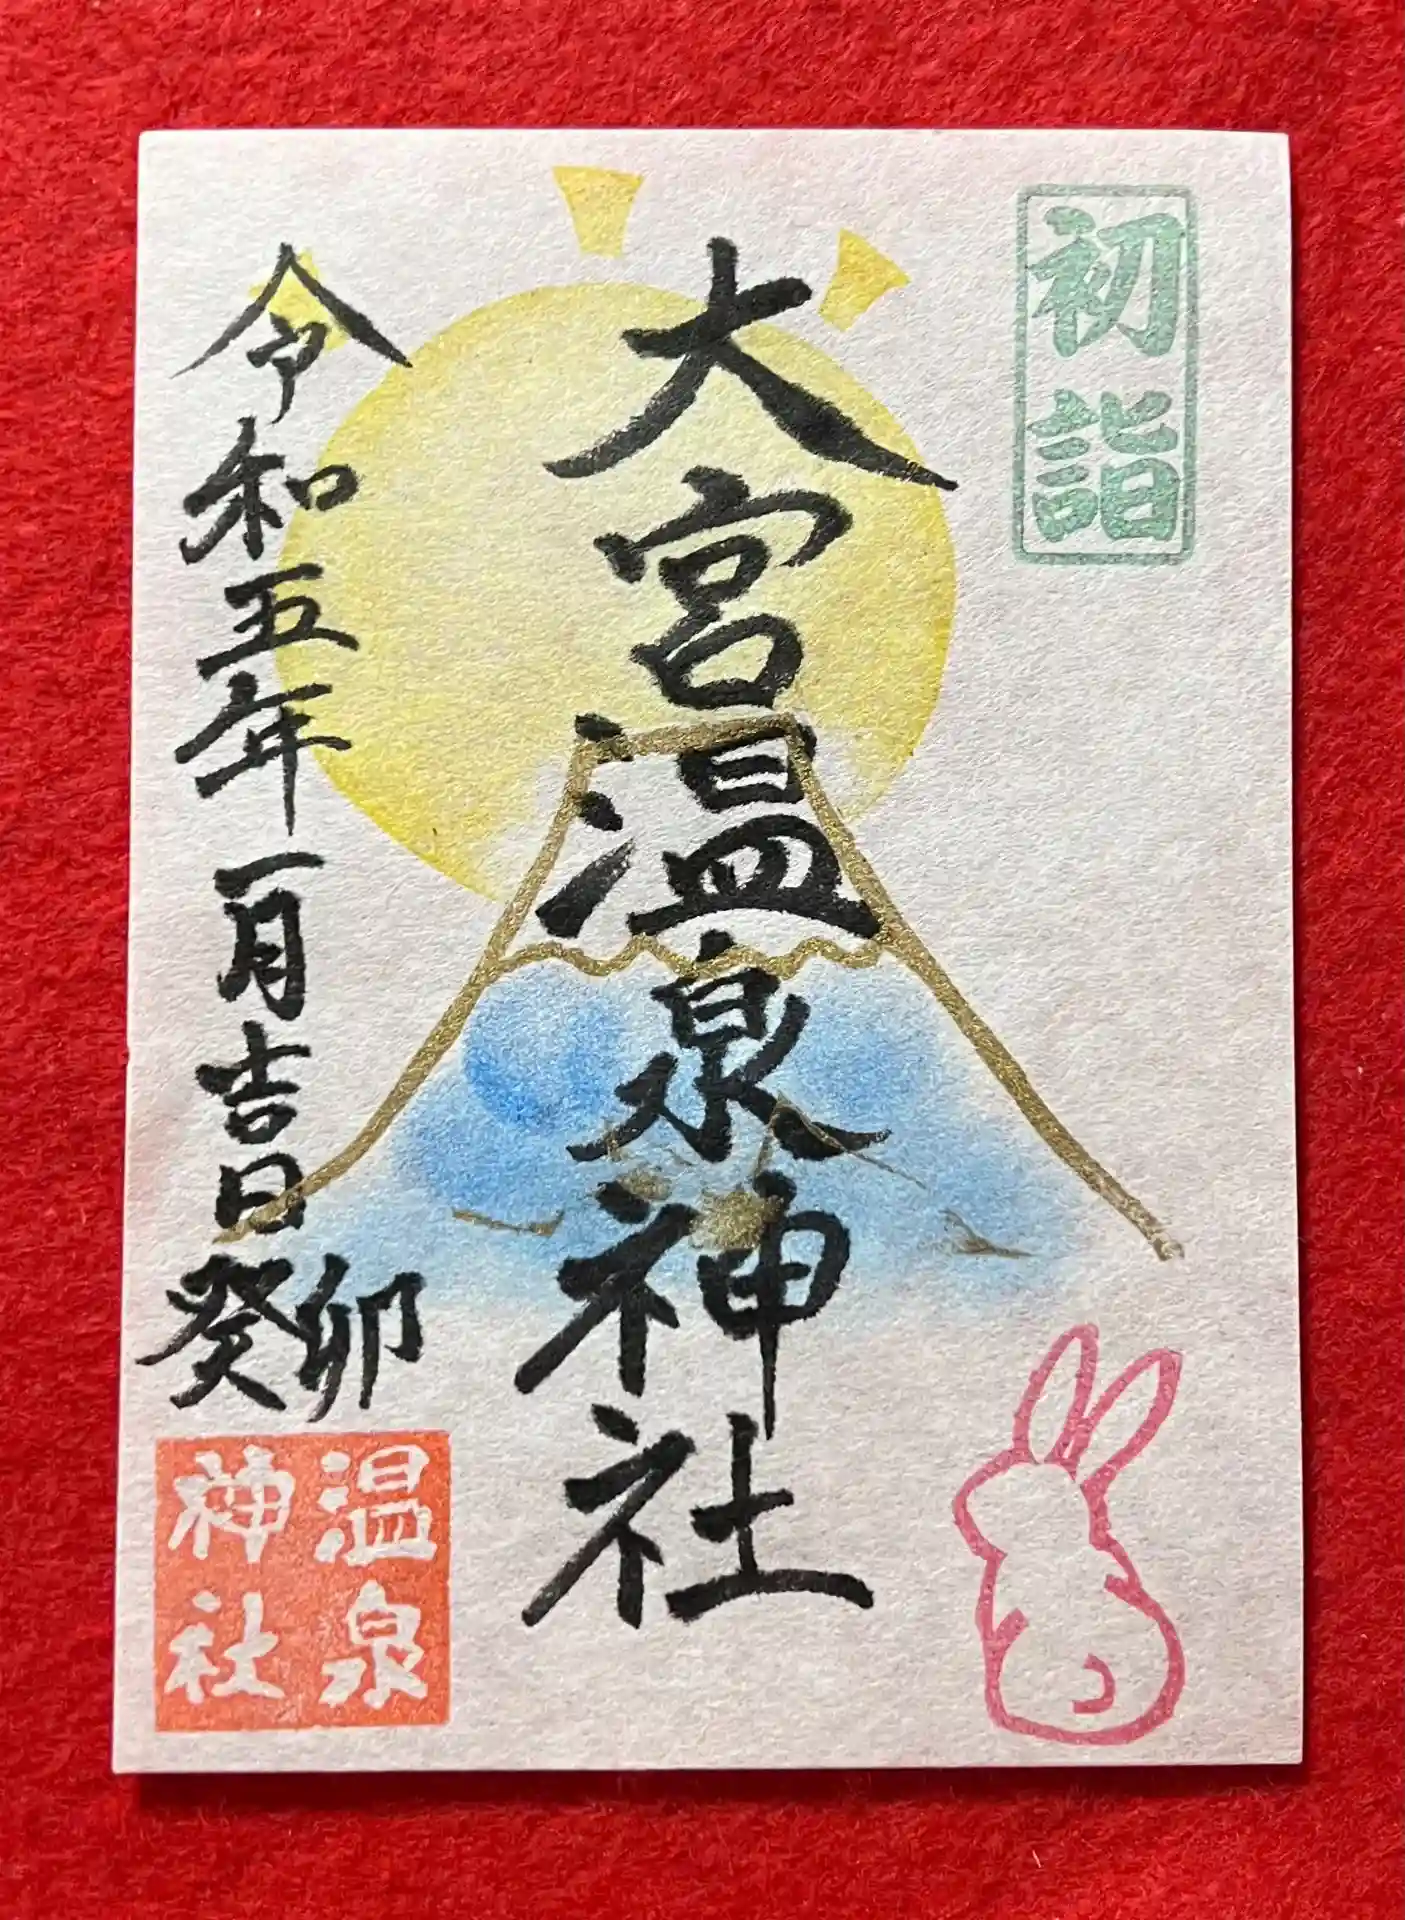 初詣
大宮温泉神社
令和五年一月吉日
癸卯
温泉
神社